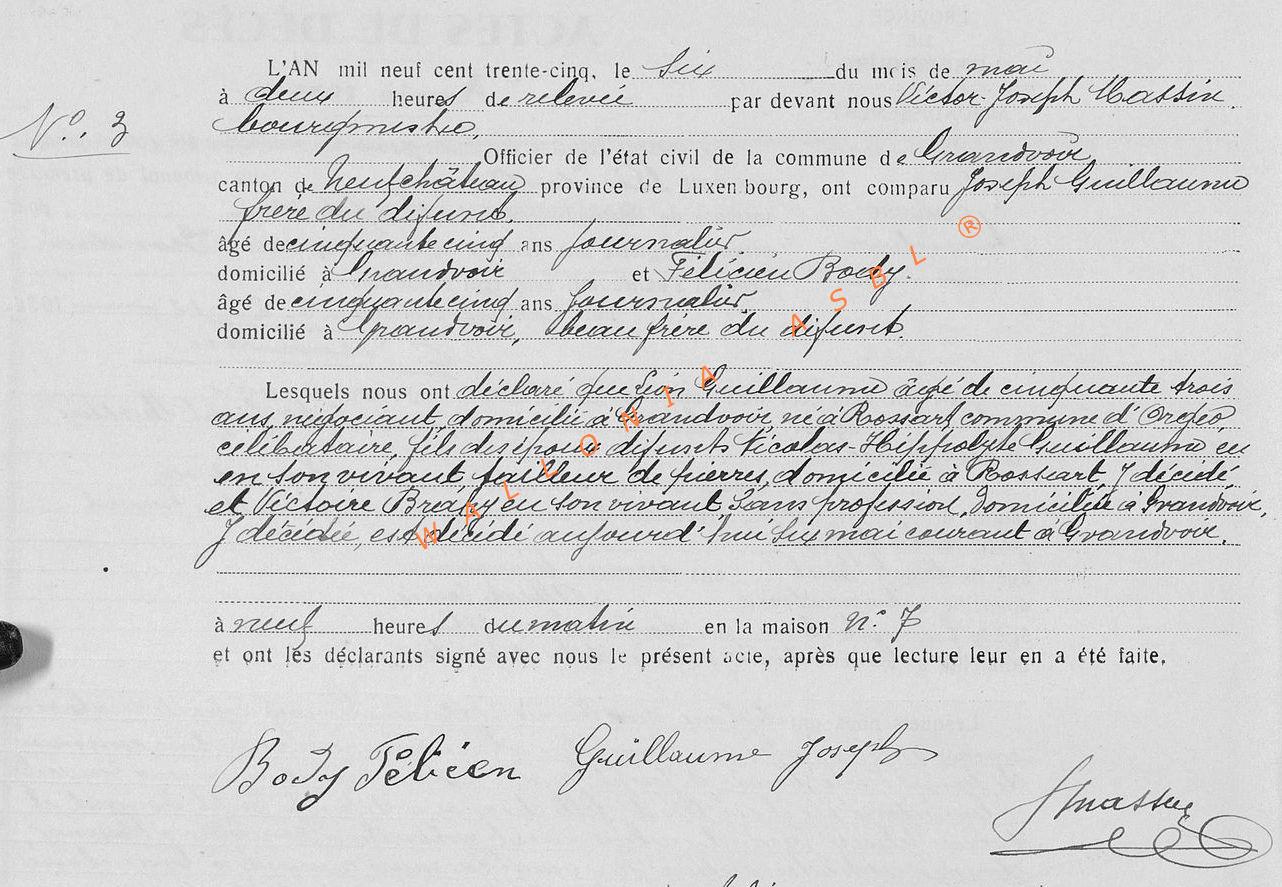 L'AN mil neuf cent trente-cinq, le six du mois de mai
à deux heures de relevée par devant nous Victor-Joseph Massin
Nº. 3
bourgmestre,
Officier de l'état civil de la commune de Grandvoir
canton de Neufchâteau province de Luxembourg, ont comparu Joseph Guillaume
frère du défunt,
âgé de cinquante cinq ans journalier
domicilié à Grandvoir et Félicien Body.
âgé de cinquante cinq ans journalier
domicilié à Grandvoir, beau frère du défunt.
Lesquels nous ont déclaré que Léon Guillaume âgé de cinquante trois
ans, négociant, domicilié à Grandvoir, né à Rossart, commune d'Orgeo,
célibataire, fils des époux défunts Nicolas-Hippolyte Guillaume en
en son vivant tailleur de pierres, domicilié à Rossart, y décédé
et Victoire en son vivant, sans profession, domiciliée à Grandvoir,
y décédée, est décédé aujourd'hui six mai courant à Grandvoir.
à neuf heures du matin en la maison nº 7
et ont les déclarants signé avec nous le présent acte, après que lecture leur en a été faite.
Body Félicien Guillaume Joseph
WALLONIA ASBL ®